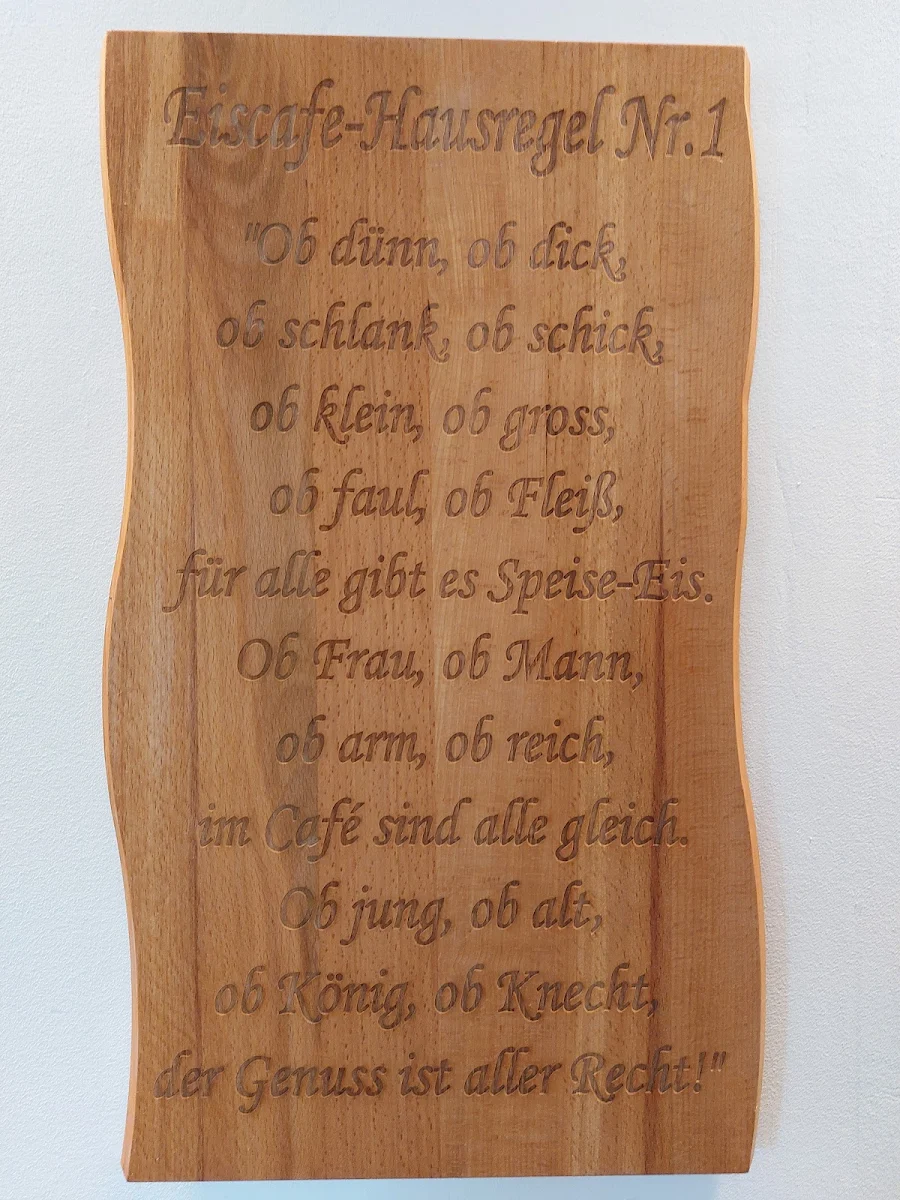 Eiscafe-Hausregel Nr.1
"Ob dünn, ob dick,
ob schlank, ob schick,
ob klein, ob gross,
ob faul, ob Fleiß,
für alle gibt es Speise-Eis.
Ob Frau, ob Mann,
ob arm, ob reich,
im Café sind alle gleich.
Ob jung, ob alt,
ob König, ob Knecht,
der Genuss ist aller Recht!"